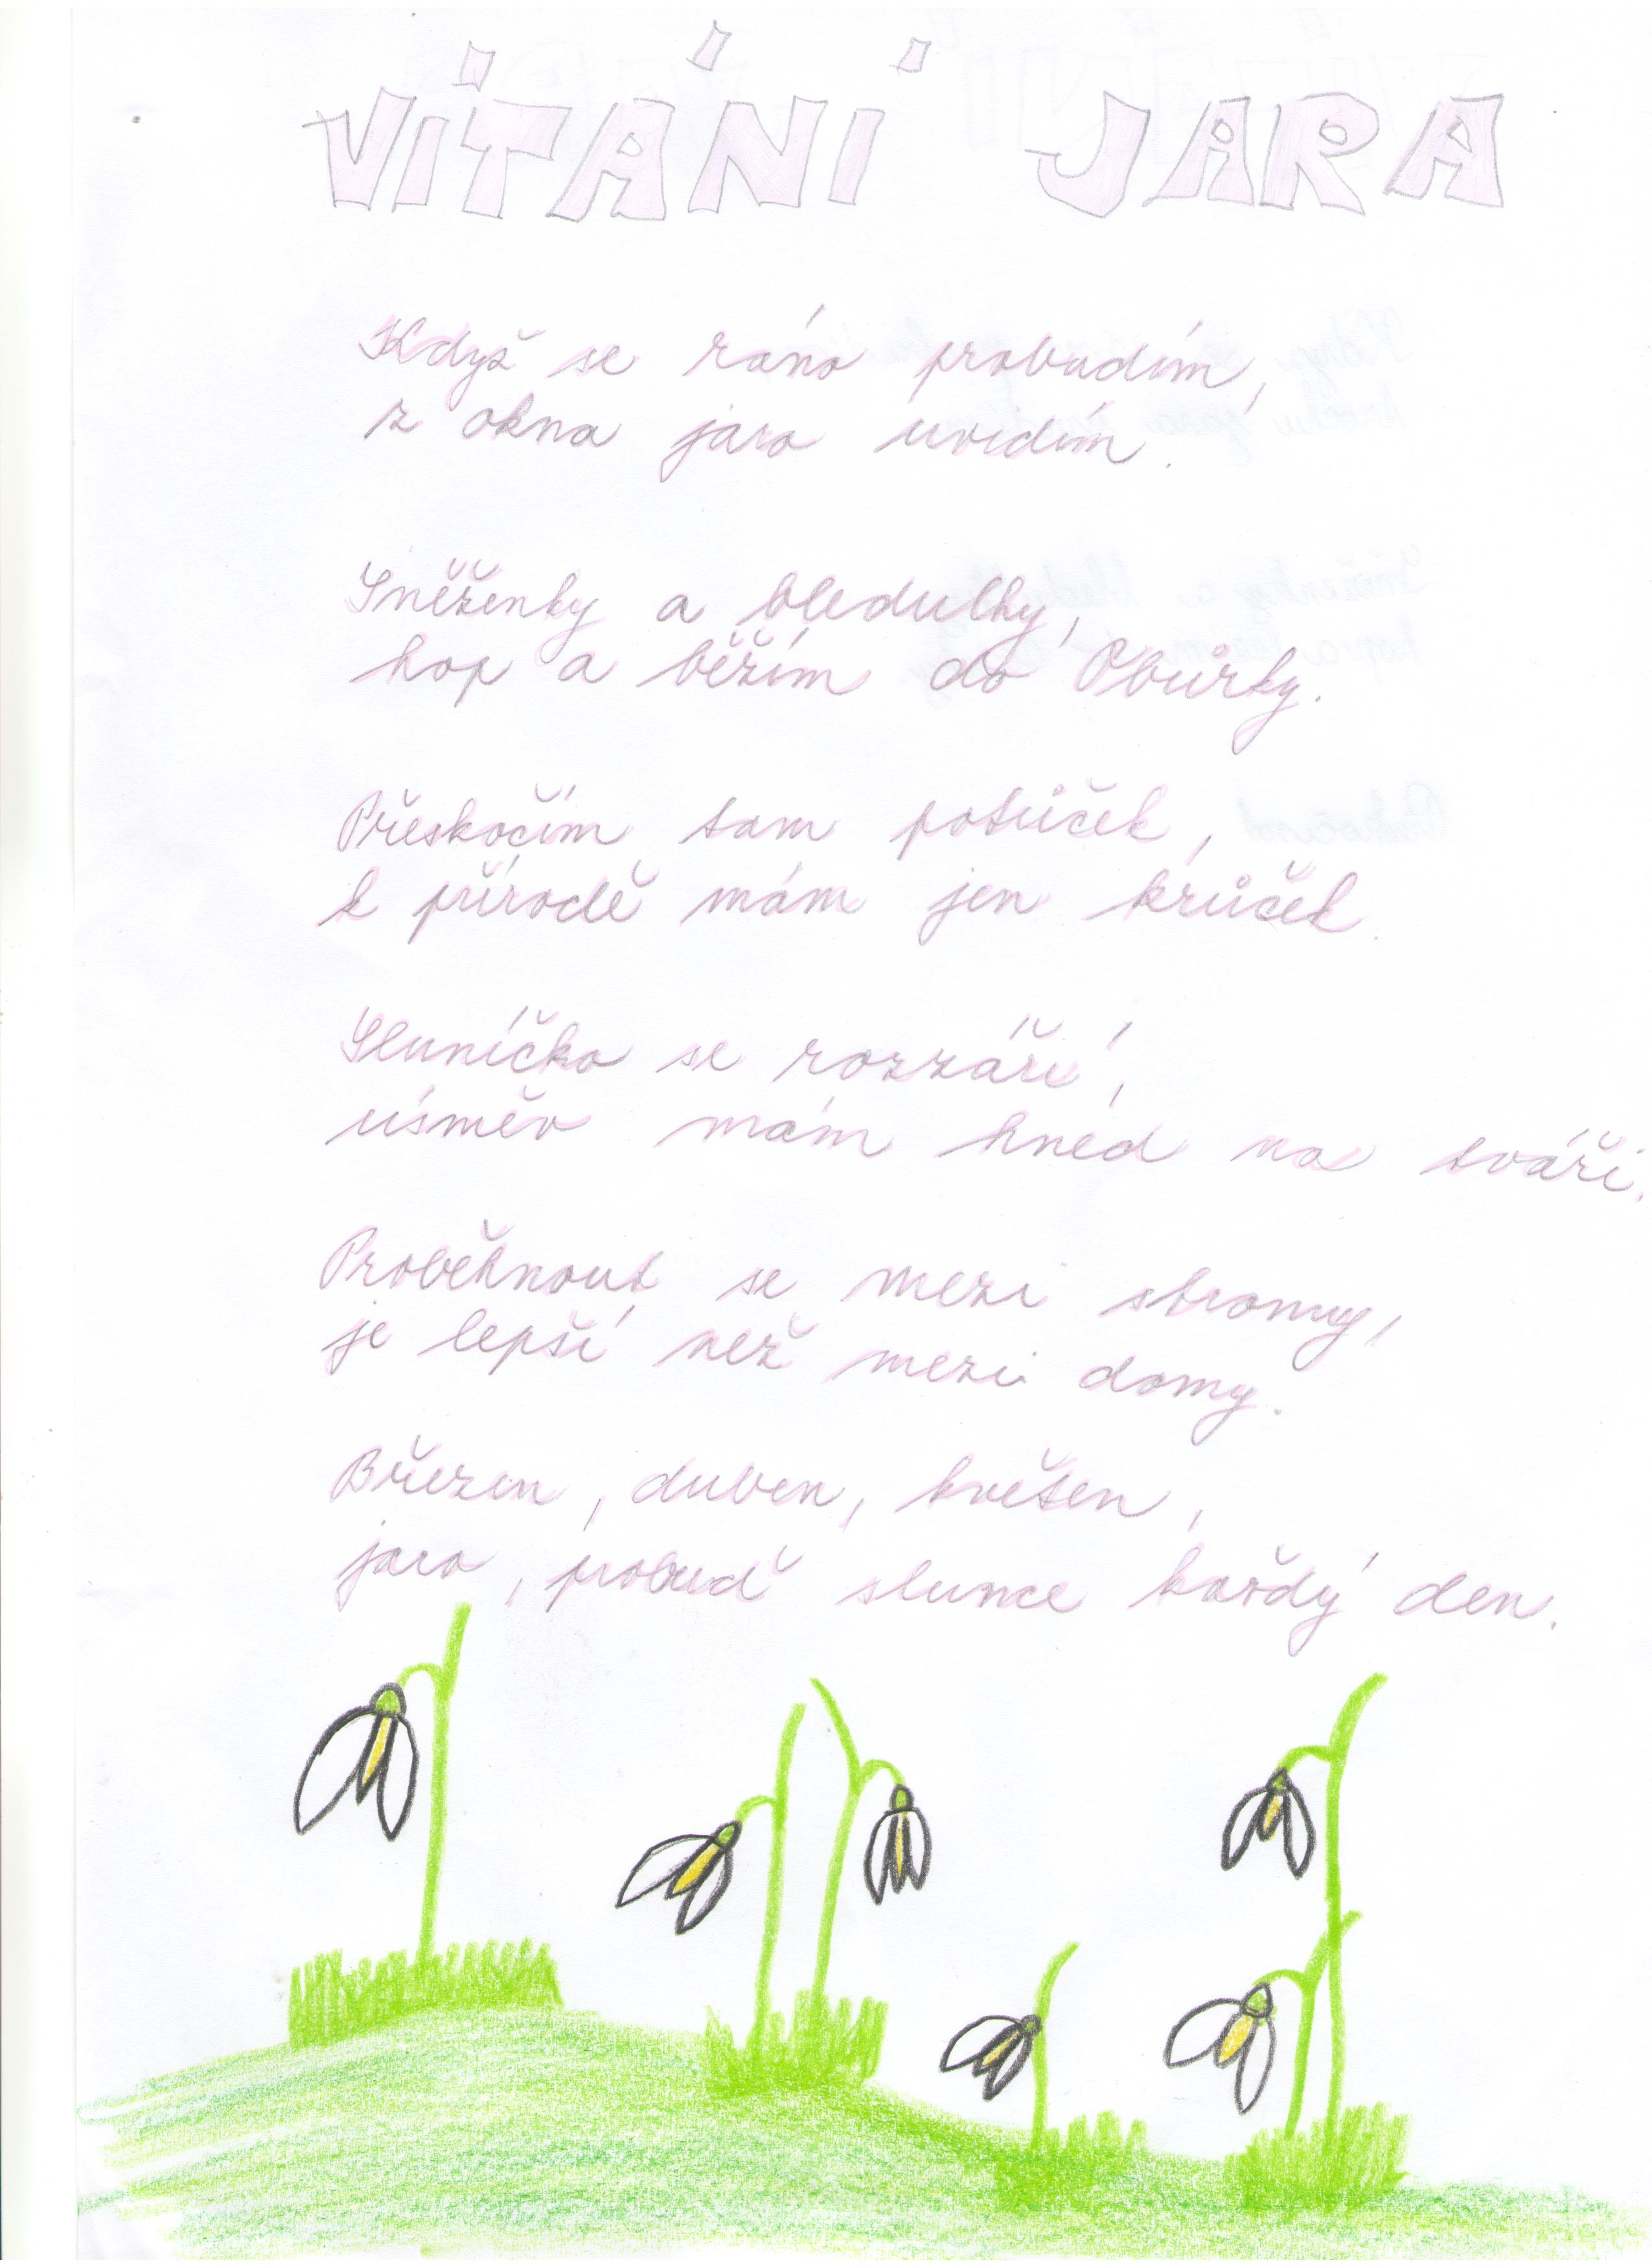 VÍTÁNÍ JARA
Když se ráno probudím,
z okna jaro uvidím.
Sněženky a bledulky,
hop a běžím do Obůrky.
Přeskočím tam potůček,
k přírodě mám jen krůček.
Sluníčko se rozzáří,
úsměv mám hned na tváři.
Proběhnout se mezi stromy,
je lepší než mezi domy.
Březen, duben, květen,
jaro, probuď slunce každý den.